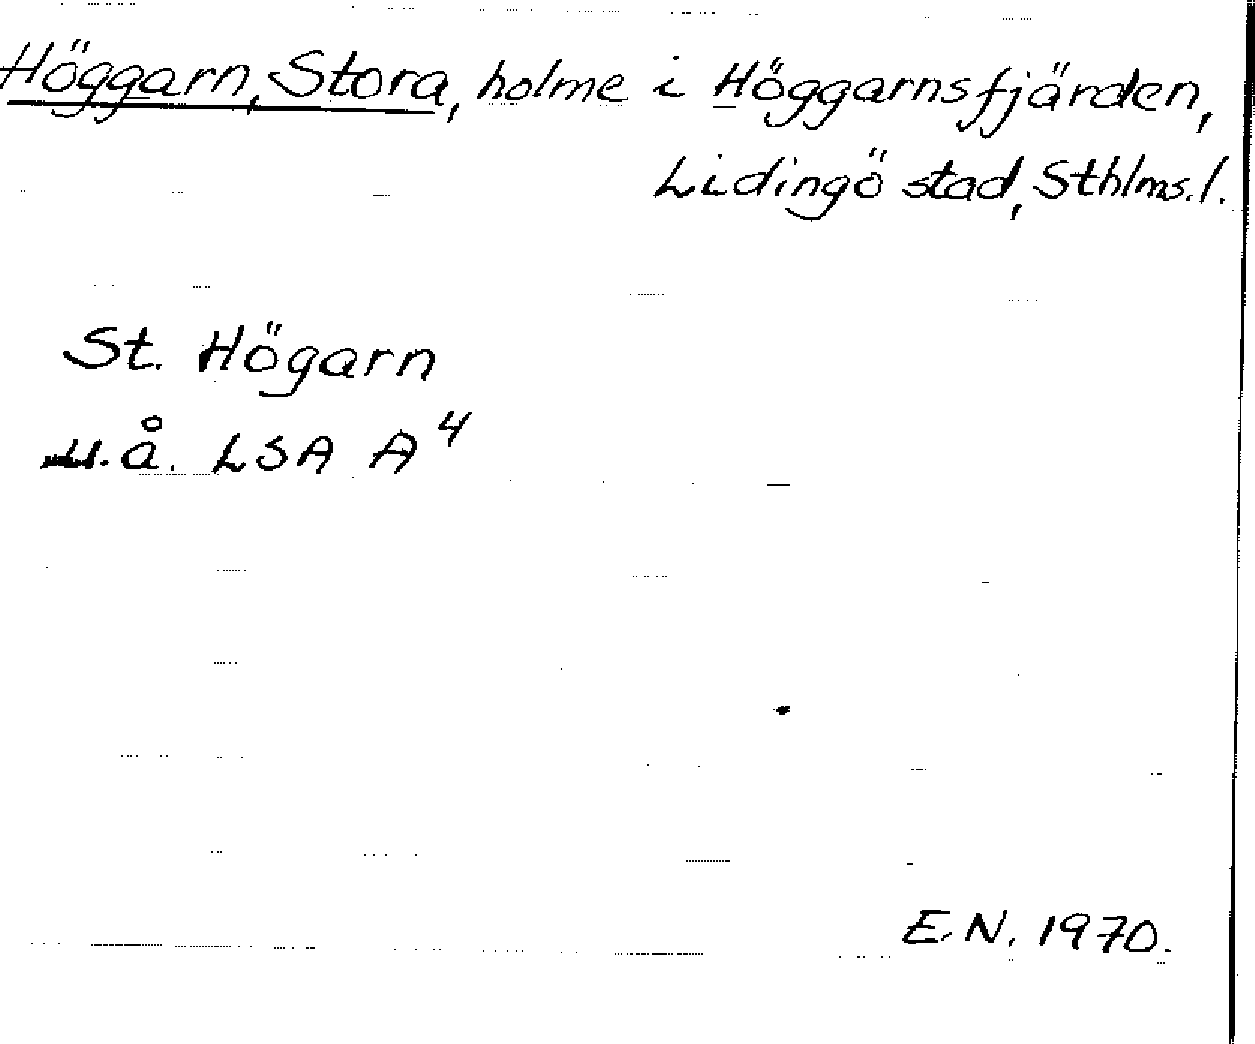 Höggarn, Stora, holme i Höggarnsfjärden,
Lidingö stad, Sthlms. l.
St. Högarn
u.å. LSA A4
E.N. 1970.